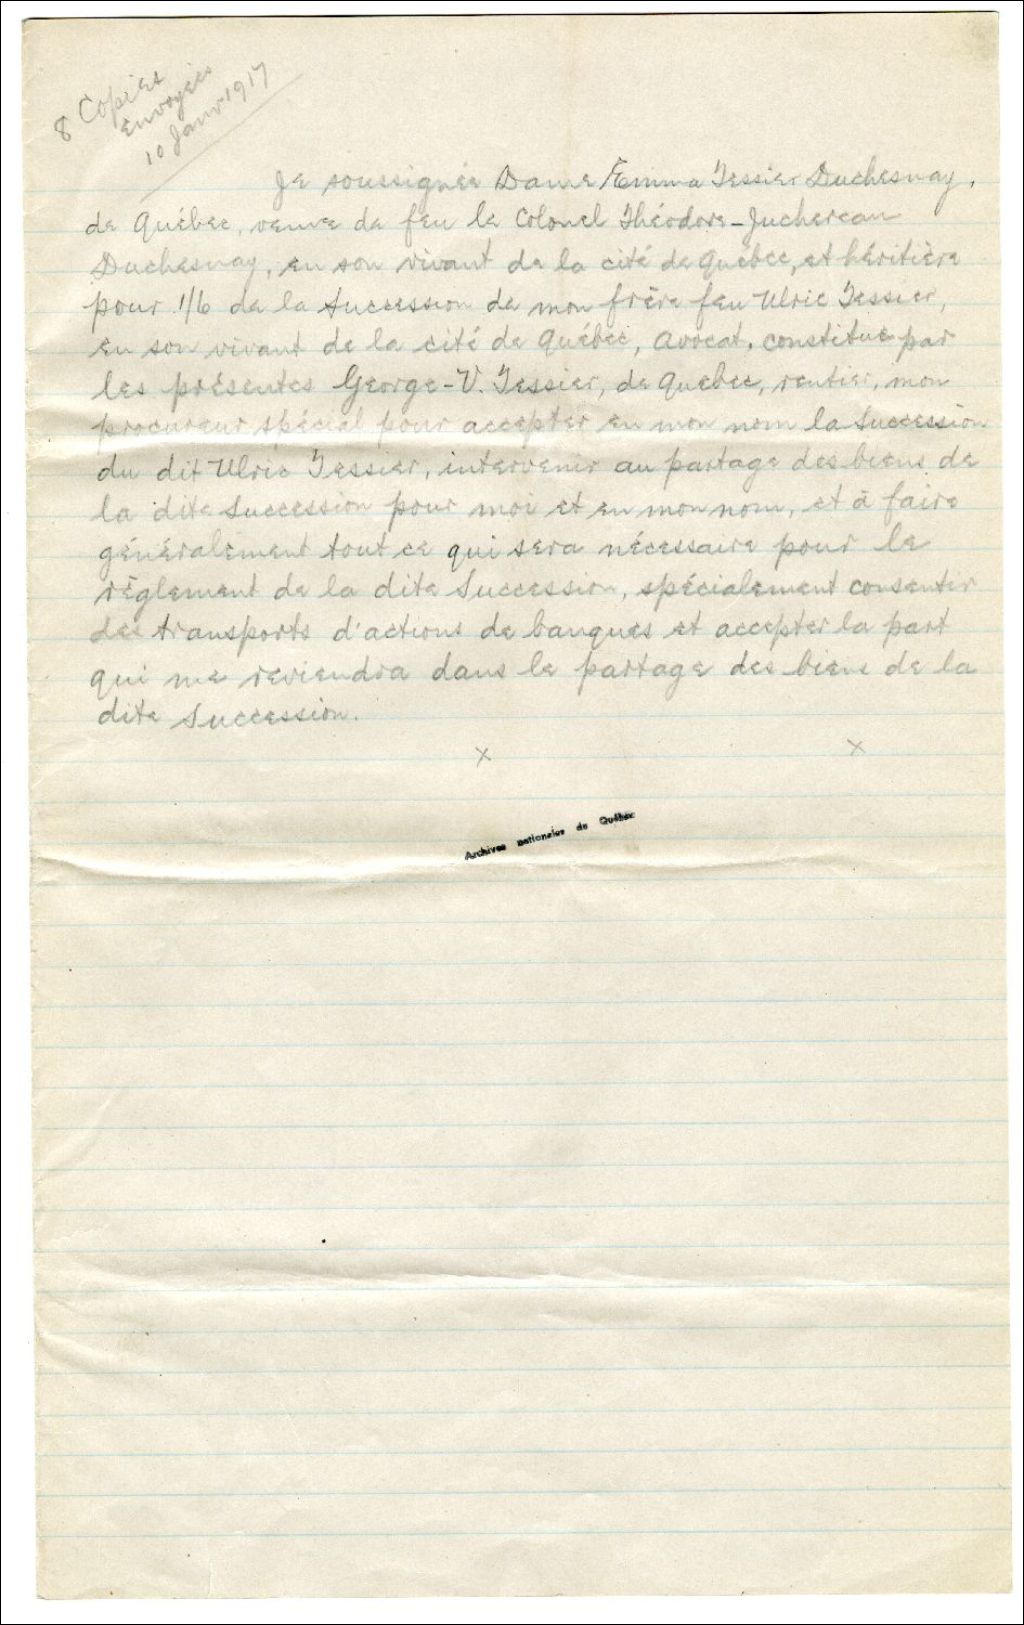 8 Copies
envoyées
10 Janv 1917
Je soussignée Dame Emma Tessier Duchesnay,
de Québec, veuve de feu le Colonel Théodore-Juchereau
Duchesnay, en son vivant de la cité de Québec, et héritière
pour 1/6 de la Succession de mon frère feu Ulric Tessier,
en son vivant de la cité de Québec, avocat, constitue par
les présentes George-V. Tessier, de Québec, rentier, mon
procureur spécial pour accepter en mon nom la Succession
du dit Ulric Tessier, intervenir au partage des biens de
la dite Succession pour moi et en mon nom, et à faire
généralement tout ce qui sera nécessaire pour le
règlement de la dite Succession, spécialement consentir
des transports d'actions de banques et accepter la part
qui me reviendra dans le partage des biens de la
dite Succession.
x x
Archives nationales de Québec